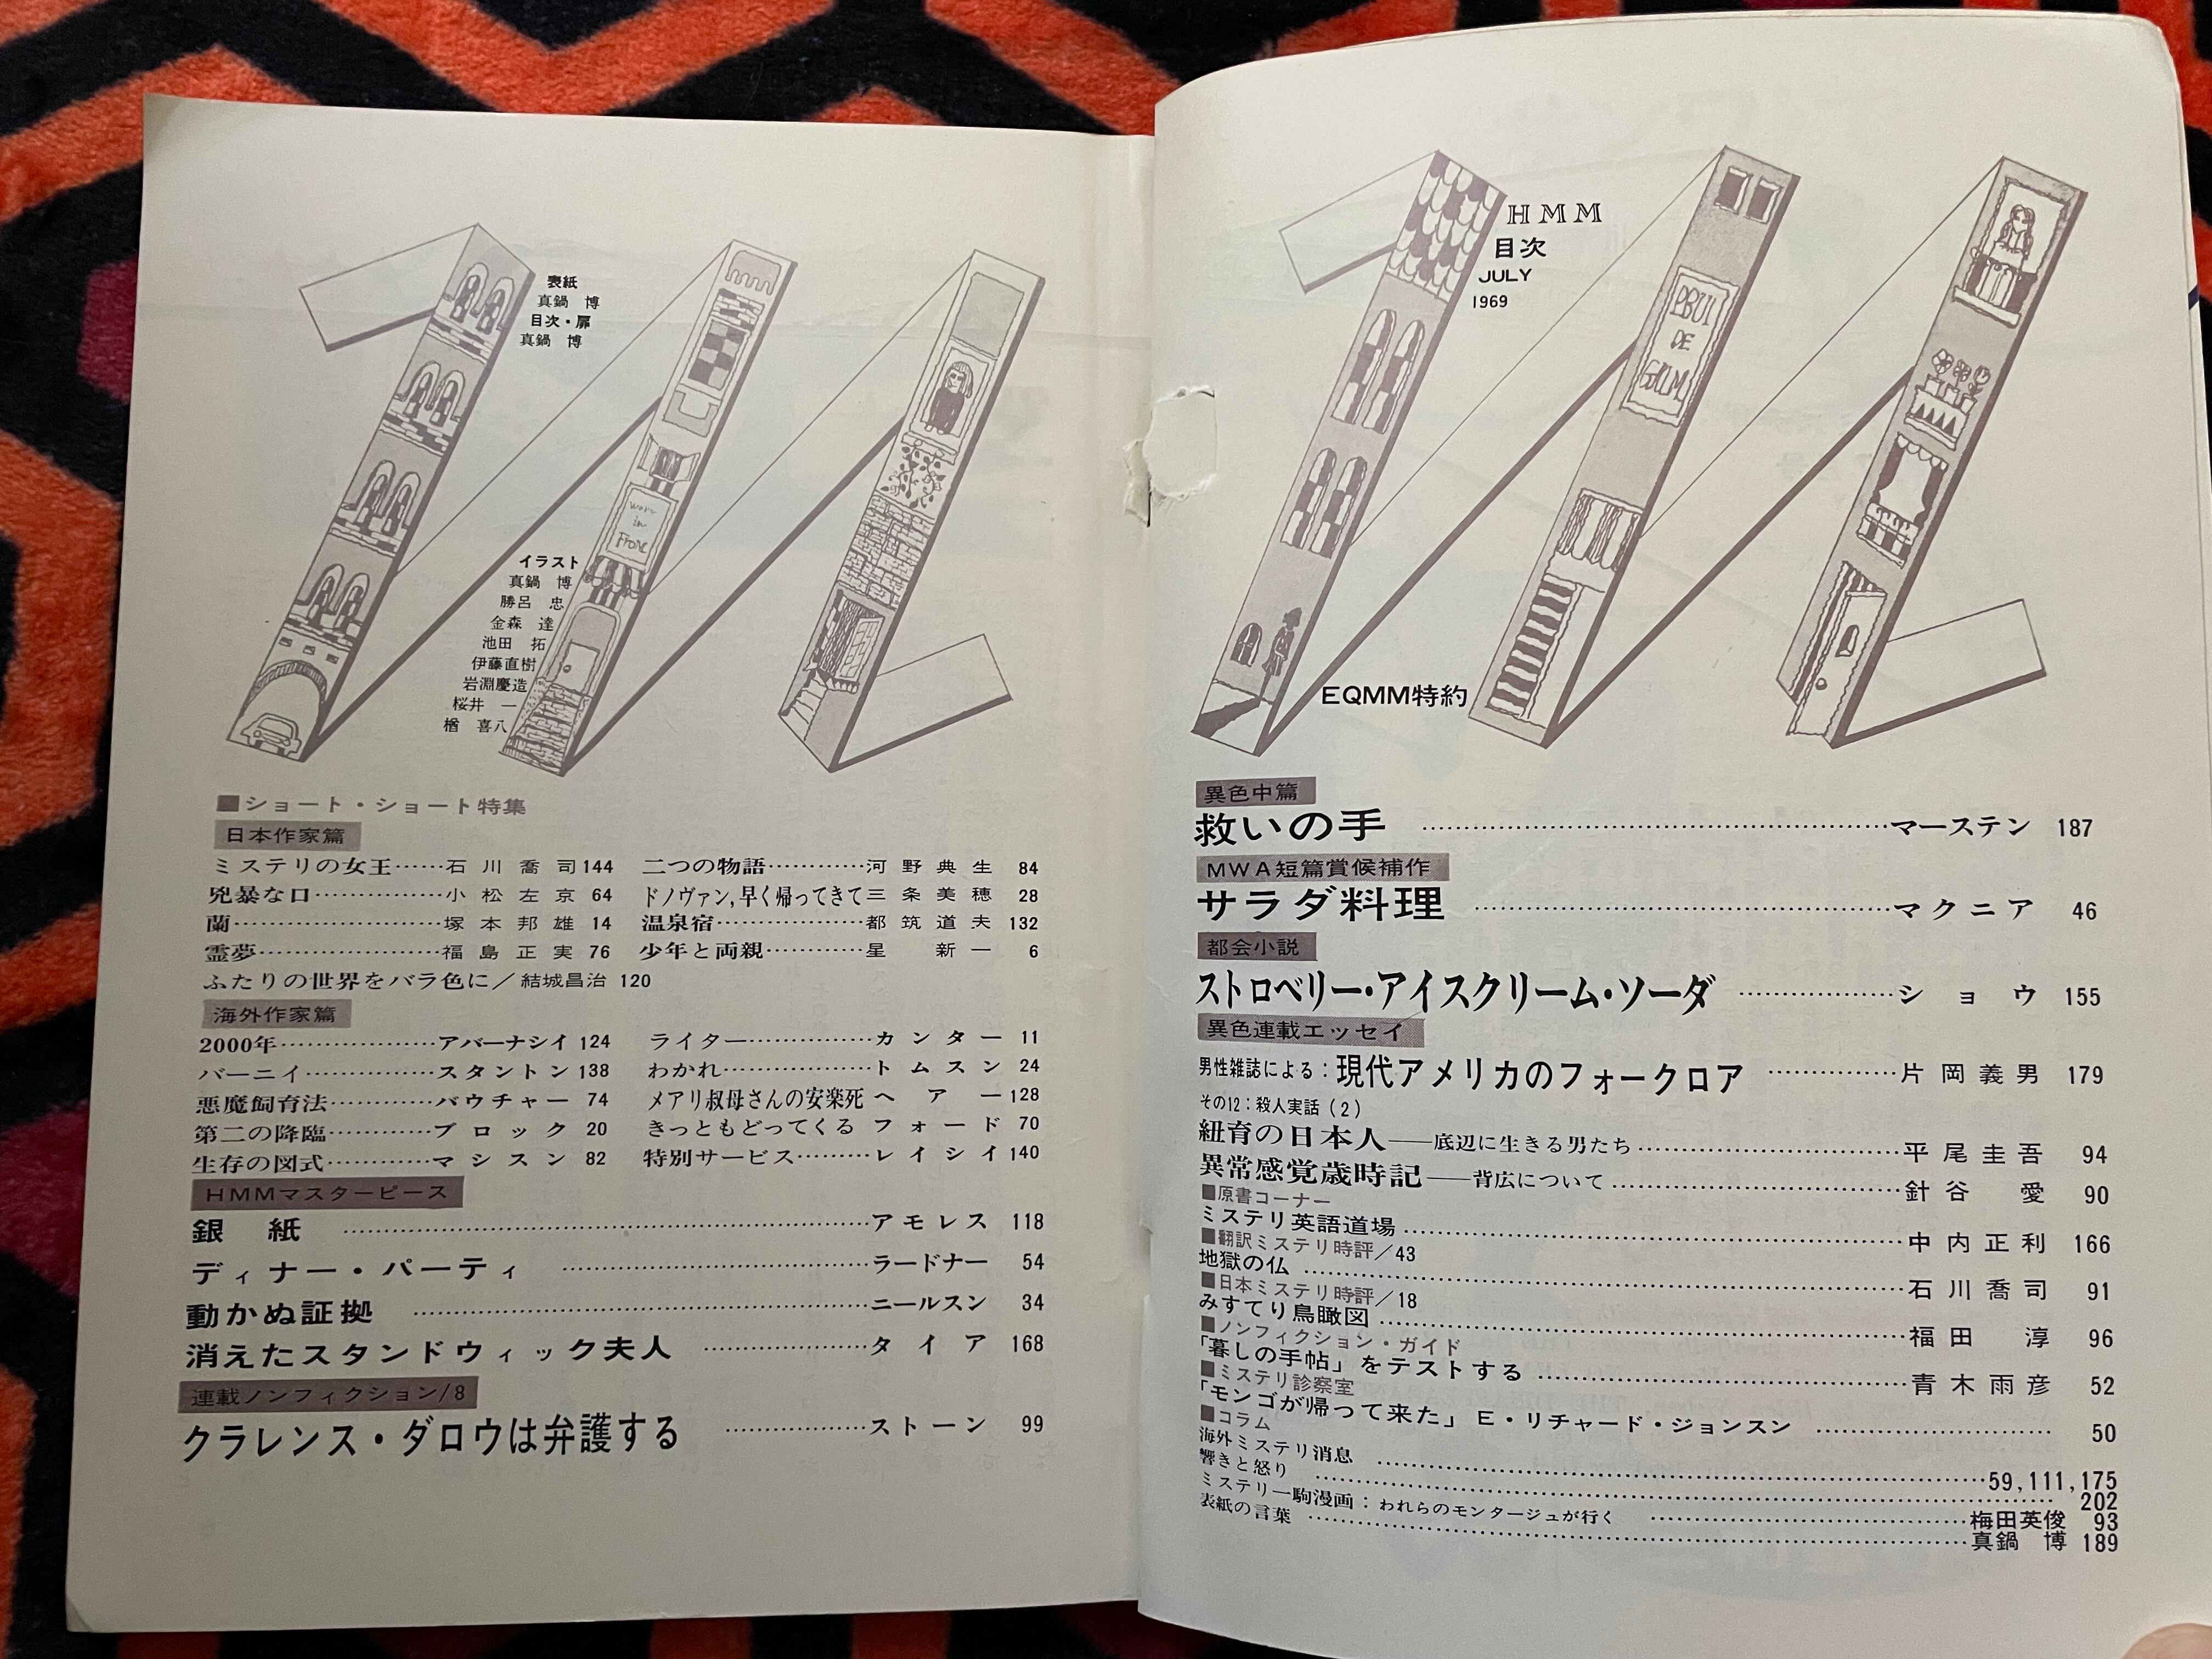 表紙
真鍋 博
目次・扉
真鍋 博
イラスト
真鍋 博
勝呂 忠
金森 達
池田 拓
伊藤直樹
岩淵慶造
桜井 一
楢 喜八
■ショート・ショート特集
日本作家篇
ミステリの女王……石川喬司 144
兇暴な口……小松左京 64
蘭……塚本邦雄 14
霊夢……福島正実 76
二つの物語……河野典生 84
ドノヴァン,早く帰ってきて 三条美穂 28
温泉宿……都筑道夫 132
少年と両親……星 新一 6
ふたりの世界をバラ色に／結城昌治 120
海外作家篇
2000年……アバーナシイ 124
バーニイ……スタントン 138
悪魔飼育法……バウチャー 74
第二の降臨……ブロック 20
生存の図式……マシスン 82
ライター……カンター 11
わかれ……トムスン 24
メアリ叔母さんの安楽死 ヘアー 128
きっともどってくる フォード 70
特別サービス……レイシイ 140
HMMマスターピース
銀紙……アモレス 118
ディナー・パーティ……ラードナー 54
動かぬ証拠……ニールスン 34
消えたスタンドウィック夫人……タイア 168
連載ノンフィクション/8
クラレンス・ダロウは弁護する……ストーン 99
HMM
目次
JULY
1969
EQMM特約
異色中篇
救いの手……マーステン 187
MWA短篇賞候補作
サラダ料理……マクニア 46
都会小説
ストロベリー・アイスクリーム・ソーダ……ショウ 155
異色連載エッセイ
男性雑誌による：現代アメリカのフォークロア……片岡義男 179
その12：殺人実話（2）
紐育の日本人――底辺に生きる男たち……平尾圭吾 94
異常感覚歳時記――背広について……針谷 愛 90
■原書コーナー
ミステリ英語道場……中内正利 166
■翻訳ミステリ時評／43
地獄の仏……石川喬司 91
■日本ミステリ時評／18
みすてり鳥瞰図……福田 淳 96
■ノンフィクション・ガイド
「暮しの手帖」をテストする……青木雨彦 52
■ミステリ診察室
「モンゴが帰って来た」E・リチャード・ジョンスン……50
■コラム
海外ミステリ消息……59,111,175
響きと怒り……202
ミステリ一駒漫画：われらのモンタージュが行く……梅田英俊 93
表紙の言葉……真鍋 博 189